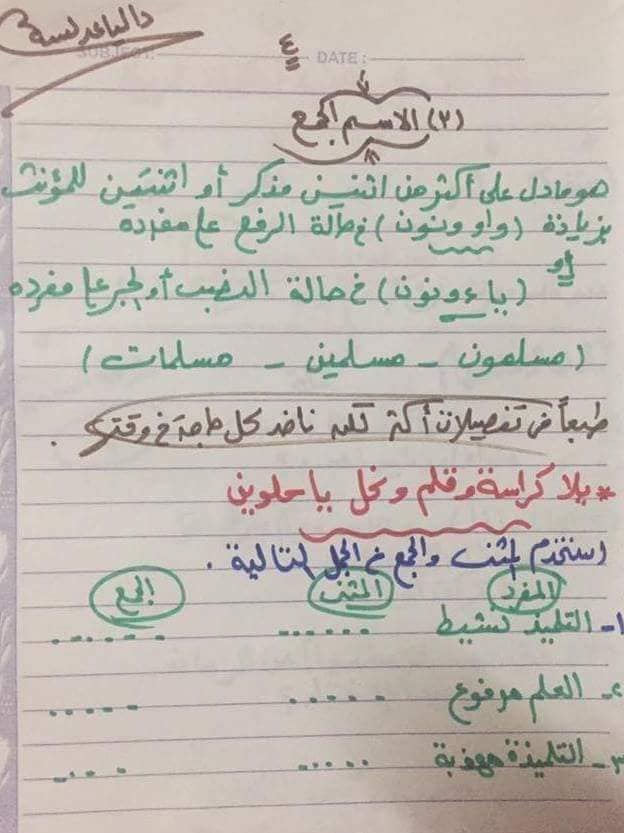 داليا عدلسة
SUBJECT: ٤ DATE:
(٣) الاسم الجمع
هو مادل على أكثر من اثنين مذكر أو اثنتين للمؤنث
بزيادة (واو ونون) فى حالة الرفع على مفرده
أو
(ياء ونون) فى حالة النصب أو الجر على مفرده
(مسلمون - مسلمين - مسلمات)
طبعاً فى تفصيلات أكتر لكن ناخد كل حاجة فى وقتها .
* يلا كراسة وقلم ونحل يا حلوين
استخدم المثنى والجمع فى الجمل التالية .
المفرد المثنى الجمع
١- التلميذ نشيط ...... ......
٢- العلم مرفوع ..... .....
٣- التلميذة مهذبة ..... ....